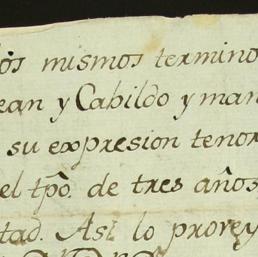 los mismos termino
ean y Cabildo y man
su expresion tenor
el tpô. de tres años
tad. Asi lo provey